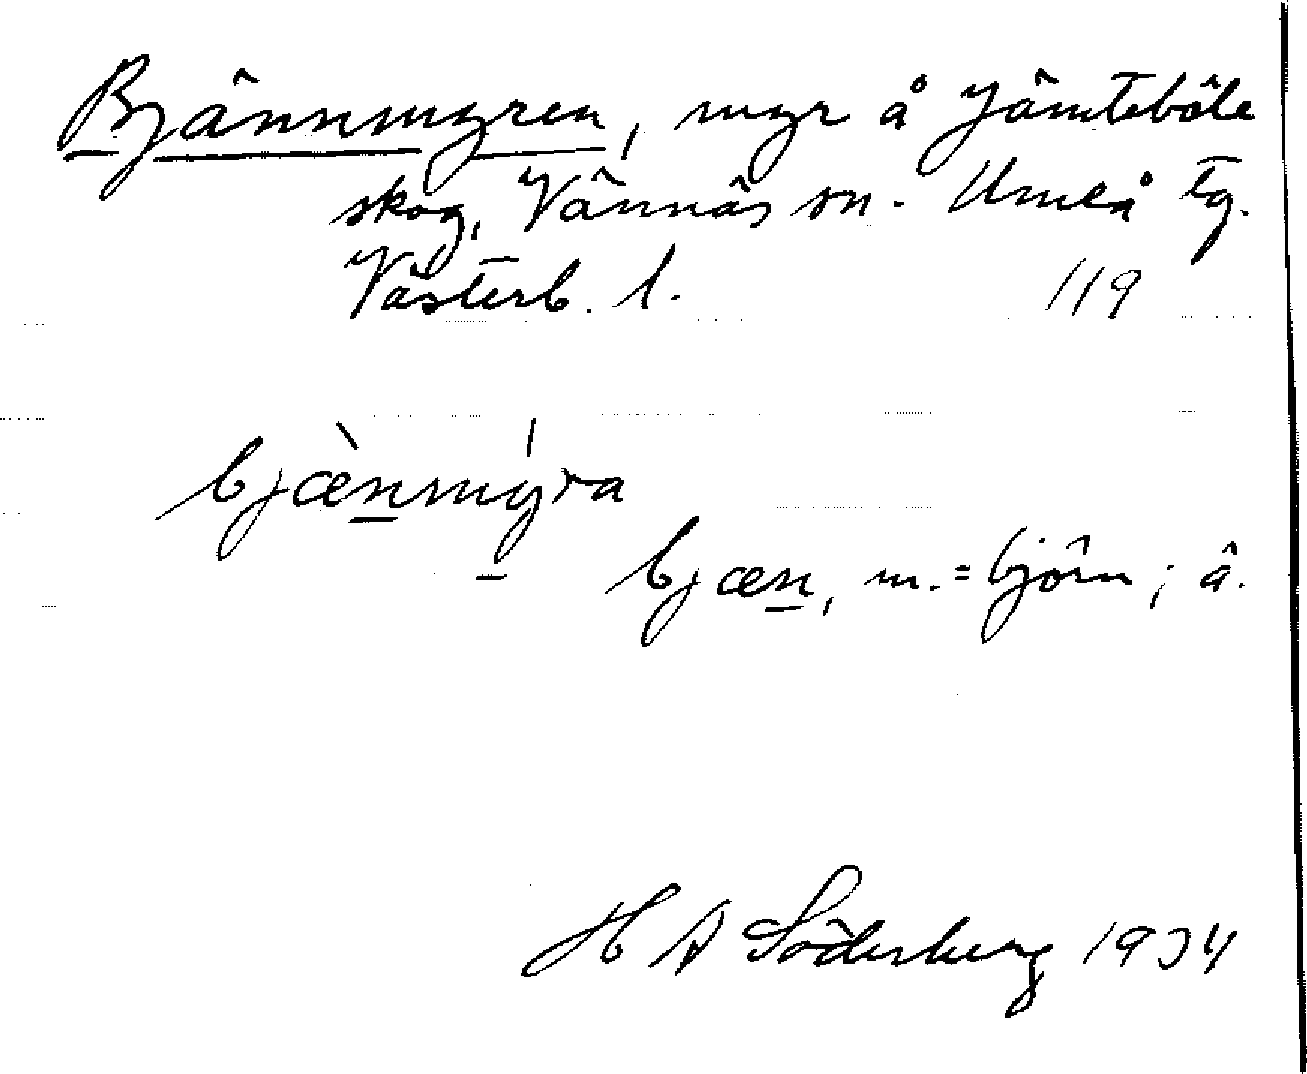 Bjännmyren, myr å Jämteböle
skog, Vännäs sn. Umeå tg.
Västerb. l. 119
bjæ̀nmýra
bjæn, m. = björn; â.
H A Söderberg 1934